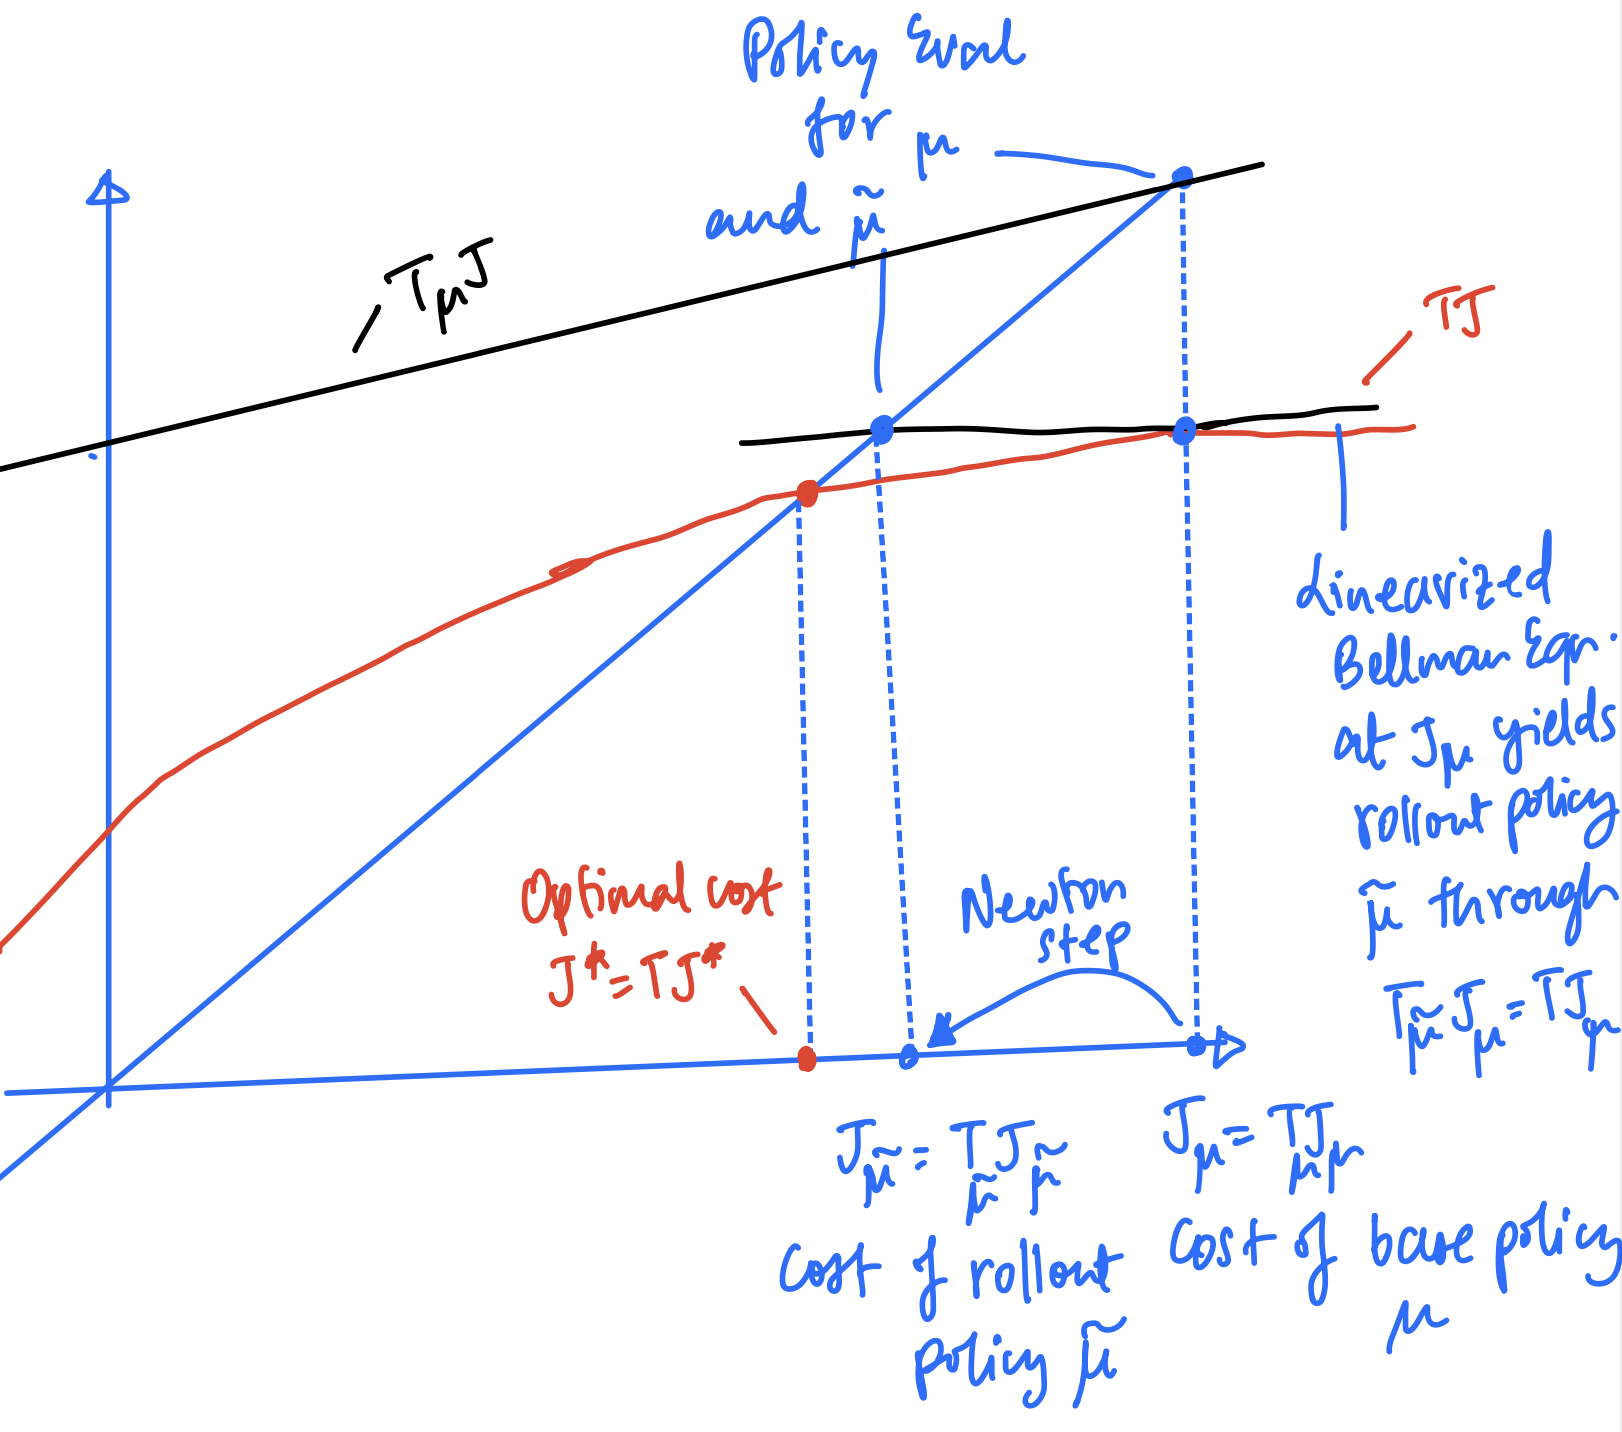 Policy Eval
for μ
and μ̃
T_μ J
TJ
Linearized
Bellman Eqn.
at J_μ yields
rollout policy
μ̃ through
T_μ̃ J_μ = TJ_μ
Optimal cost
J* = TJ*
Newton
step
J_μ̃ = T_μ̃ J_μ̃
Cost of rollout
policy μ̃
J_μ = T_μ J_μ
Cost of base policy
μ